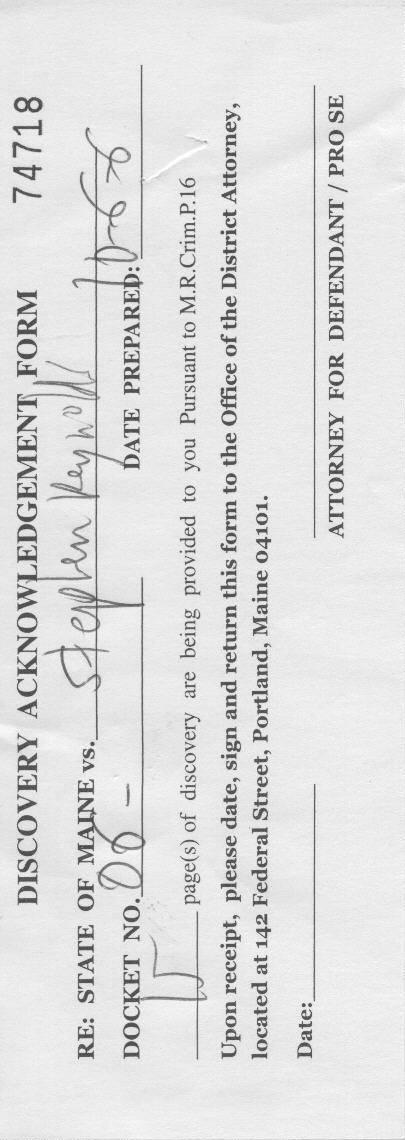 DISCOVERY ACKNOWLEDGEMENT FORM 74718
RE: STATE OF MAINE vs. Stephen Reynolds
DOCKET NO. 06- DATE PREPARED: 10-6-6
15 page(s) of discovery are being provided to you Pursuant to M.R.Crim.P.16
Upon receipt, please date, sign and return this form to the Office of the District Attorney,
located at 142 Federal Street, Portland, Maine 04101.
Date:
ATTORNEY FOR DEFENDANT / PRO SE